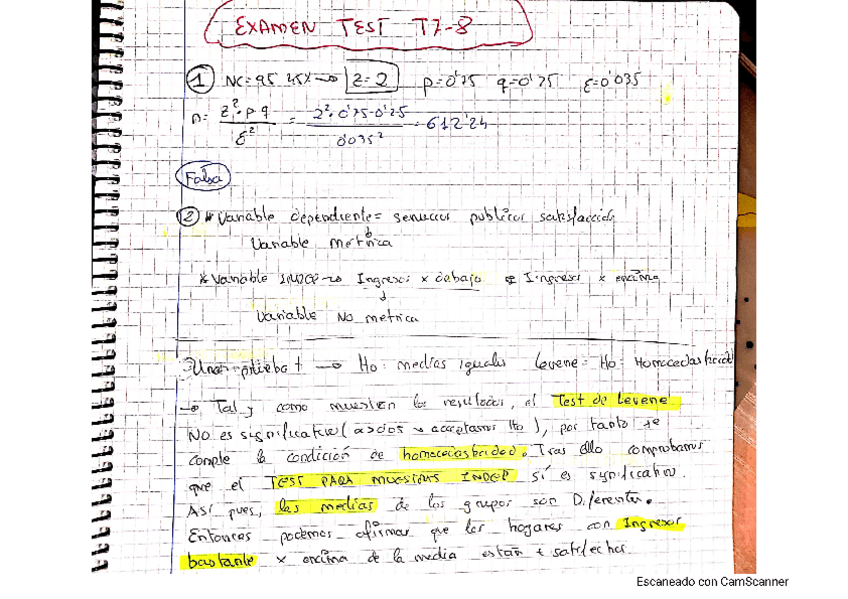 EXAMEN TEST T7-8
① NC = 95'45% → Z=2 p=0'75 q=0'25 ε=0'035
n = Z²·p·q / ε² = 2²·0'75·0'25 / 0'035² = 612'24
Falsa
② * Variable dependiente = servicios publicos satisfacción
Variable métrica
* Variable INDEP → Ingresos x debajo e Ingresos x encima
↓
Variable No metrica
Una prueba t → Ho: medias iguales Levene = Ho: Homocedasticidad
→ Tal y como muestran los resultados, el Test de Levene
No es significativo ( > 0'05 → aceptamos Ho), por tanto se
cumple la condición de homocedasticidad. Tras ello comprobamos
que el TEST PARA MUESTRAS INDEP sí es significativo.
Así pues, las medias de los grupos son Diferentes.
Entonces podemos afirmar que los hogares con Ingresos
bastante x encima de la media están + satisfechos.
Escaneado con CamScanner